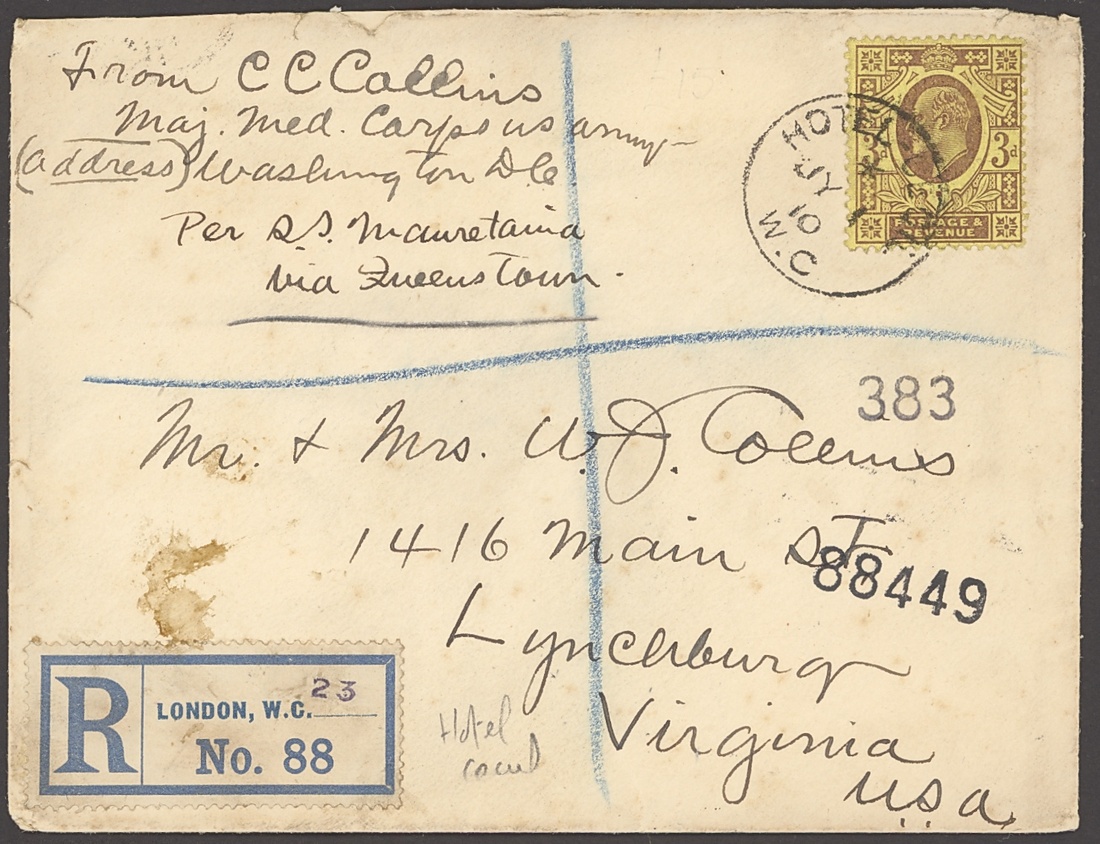 From C C Collins
Maj. Med. Corps US army
(address) Washington D.C
Per S.S. Mauretania
via Queenstown.
HOTEL
JY
10
W.C.
3d
POSTAGE &
REVENUE
383
Mr. & Mrs. W. J. Collins
1416 Main St
88449
Lynchburg
Virginia
U.S.A
R
23
LONDON, W.C.
No. 88
Hotel